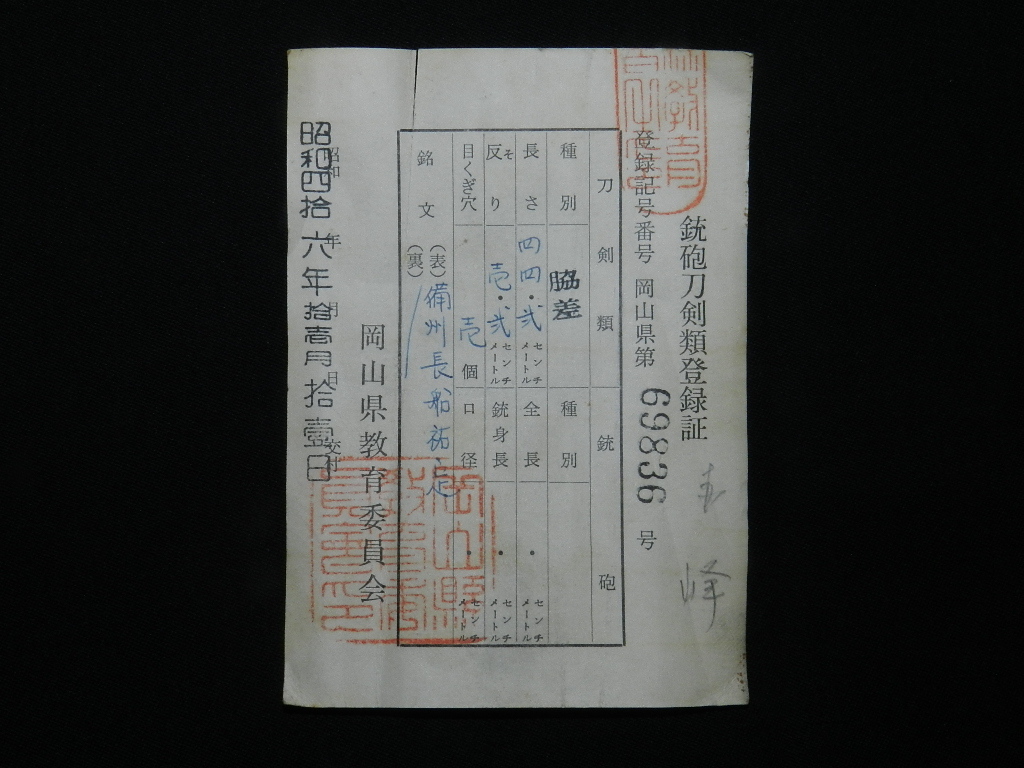 銃砲刀剣類登録証
登録記号番号 岡山県第 69836 号
刀剣類 銃砲
種別 脇差 種別
長さ 四四・弐 センチメートル 全長 ・ センチメートル
反り そ 壱・弐 センチメートル 銃身長 ・ センチメートル
目くぎ穴 壱 個 口径 ・ センチメートル
銘文 (表) 備州長船祐定
(裏)
岡山県教育委員会
昭和 年 月 日 交付
昭和四拾六年拾壱月拾壹日
岡山県教育委員会印